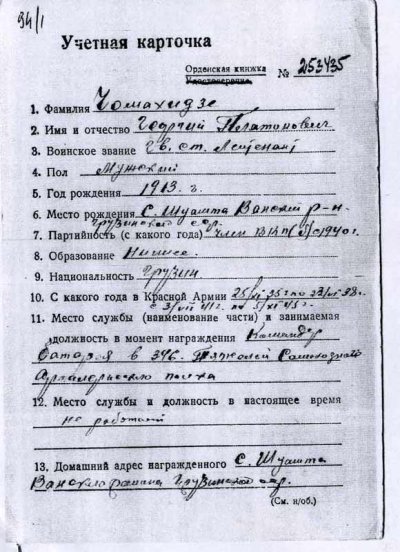 94/1
Учетная карточка
Орденская книжка
Удостоверение
№ 253435
1. Фамилия Чомахидзе
2. Имя и отчество Георгий Платонович
3. Воинское звание Гв. ст. Лейтенант
4. Пол Мужской
5. Год рождения 1913 г.
6. Место рождения С. Шуамта Ванский р-н.
Грузинской сср.
7. Партийность (с какого года) член ВКП(б) с 1940 г.
8. Образование Низшее
9. Национальность Грузин
10. С какого года в Красной Армии
11. Место службы (наименование части) и занимаемая
должность в момент награждения Командир
Батареи в 396. Тяжелой Самоходного
Артиллерийского полка
12. Место службы и должность в настоящее время
не работает
13. Домашний адрес награжденного С. Шуамта
Ванского района Грузинской сср.
(См. н/об.)